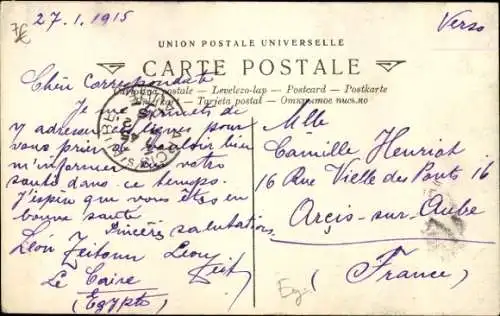 27.1.1915
Verso
UNION POSTALE UNIVERSELLE
CARTE POSTALE
postale — Levelezo-lap — Postcard — Postkarte
Tarjeta postal — Открытое письмо
Chèr correspondate
Je me permets de
y adresser lignes pour
vous prier de vouloir bien
m'informer de votre
santé dans ce temps.
J'espère que vous êtes en
bonne santé
Sincères salutations
Léon Zeitoun Leon
Zeit
Le Caire
(Egypte)
Mlle
Camille Henriot
16 Rue Vielle des Ponts 16
Arçis-sur-Aube
(France)